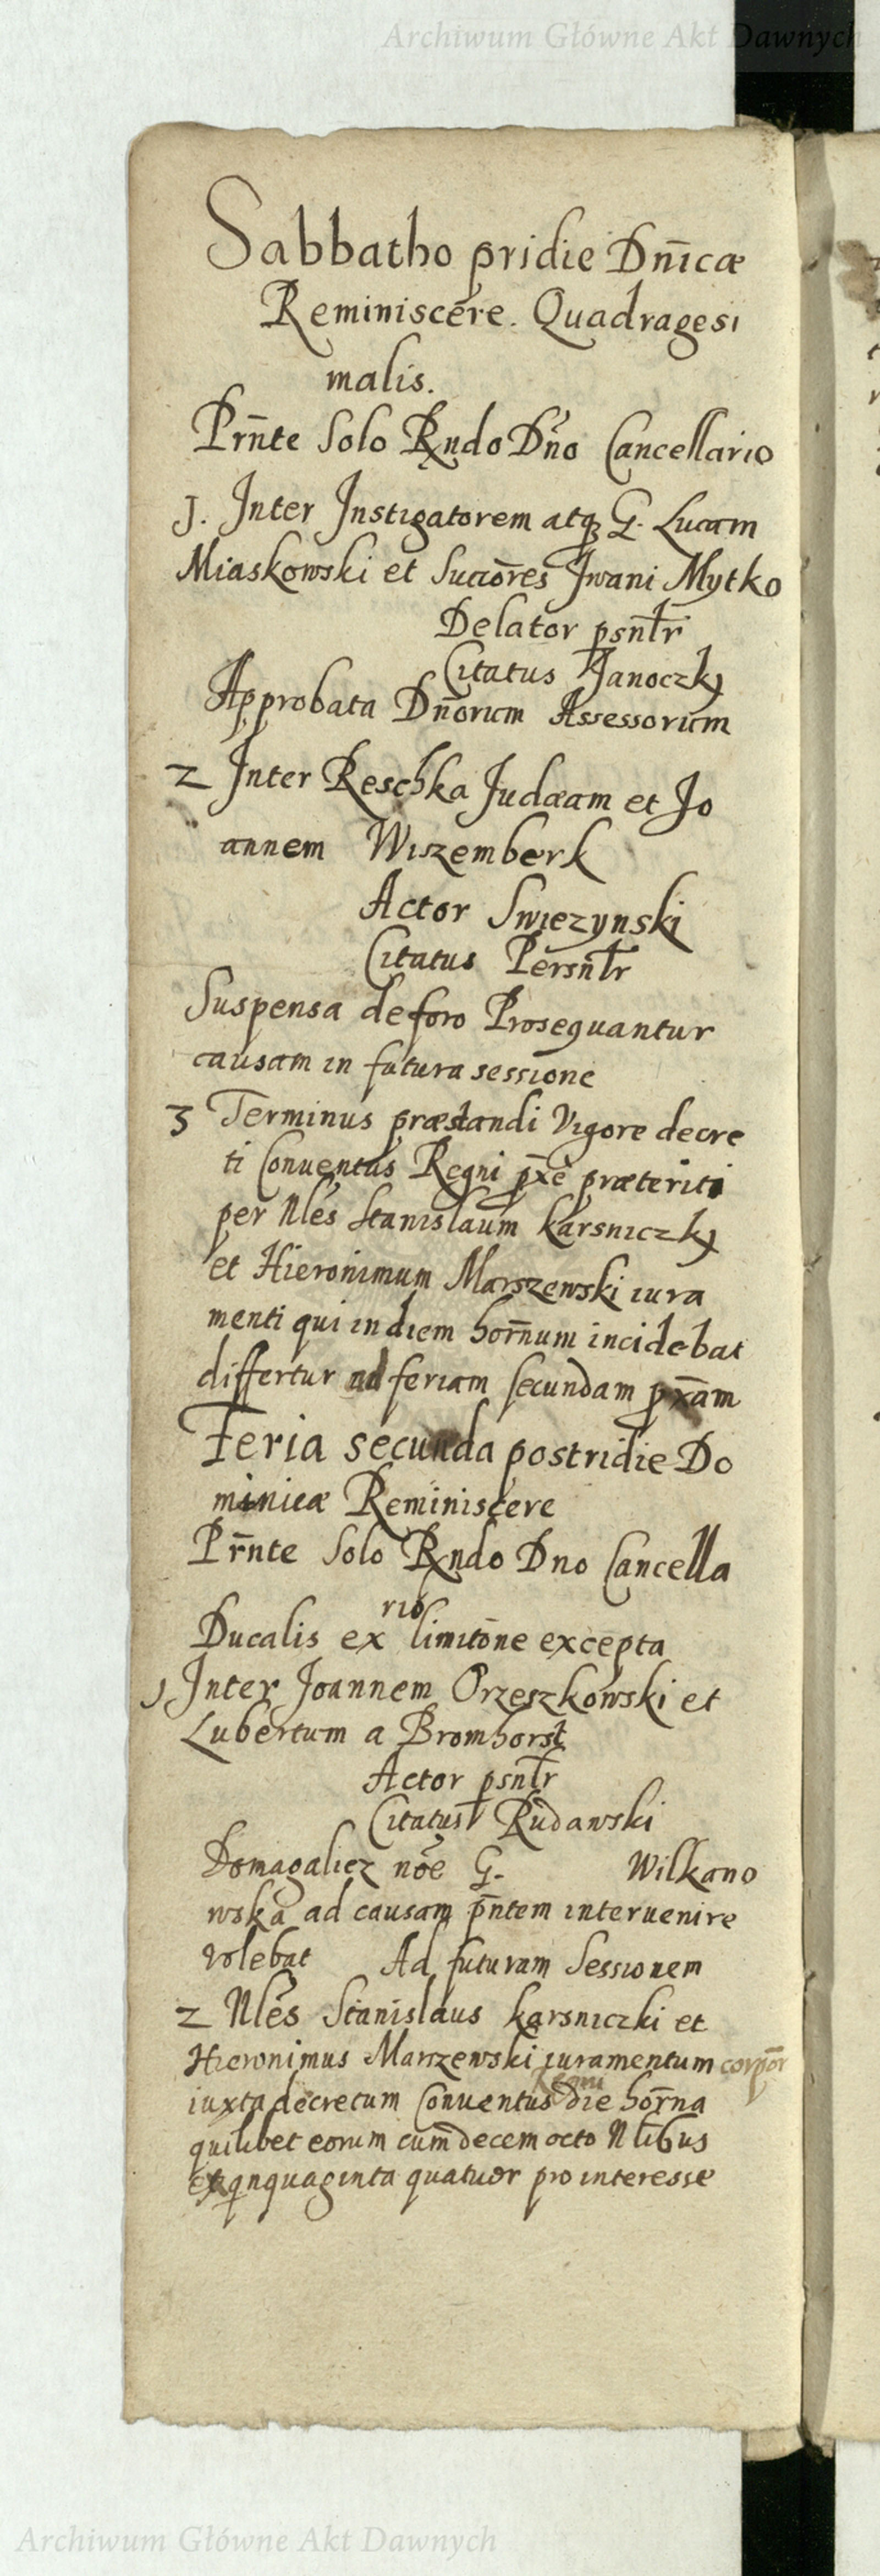 Archiwum Główne Akt Dawnych
Sabbatho pridie Dn̄icæ
Reminiscere. Quadragesi
malis.
Prn̄te Solo Rndo Dn̄o Cancellario
J. Inter Instigatorem atq; G. Lucam
Miaskowski et Succōres Jwani Mytko
Delator psnt̄r
Citatus Janoczky
Approbata Dn̄orum Assessorum
2 Inter Reschka Judæam et Jo
annem Wiszemberk
Actor Swiezynski
Citatus Persnt̄r
Suspensa de foro Prosequantur
causam in futura sessione
3 Terminus præstandi Vigore decre
ti Conventus Regni px̄e præteriti
per Nlēs Stanislaum Karsniczky
et Hieronimum Marszewski iura
menti qui in diem horn̄um incidebat
differtur ad feriam secundam px̄am
Feria secunda postridie Do
minicæ Reminiscere
Prn̄te Solo Rndo Dno Cancella
rio
Ducalis ex limitōne excepta
J Inter Joannem Orzeszkowski et
Lubertum a Bromhorst
Actor psnt̄r
Citatus Rudawski
Domagalicz nōe G. Wilkano
wska ad causam pn̄tem interuenire
volebat Ad futuram Sessionem
2 Nlēs Stanislaus Karsniczki et
Hieronimus Marszewski iuramentum corpor
Regni
iuxta decretum Conuentus die horn̄a
quilibet eorum cum decem octo Nlībus
et qnquaginta quatuor pro interesse
Archiwum Główne Akt Dawnych